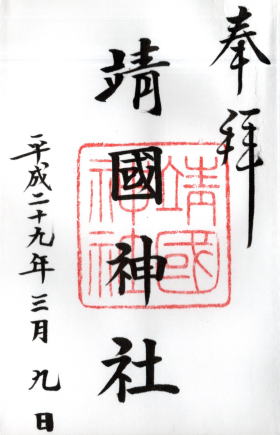 奉拝
靖國神社
靖國神社
平成二十九年三月九日